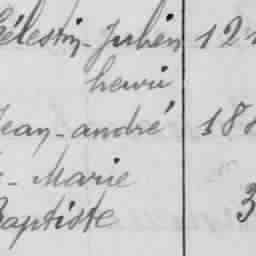 Célestin-Julien 121
henri
Jean-andré 188
- Marie
Baptiste 3